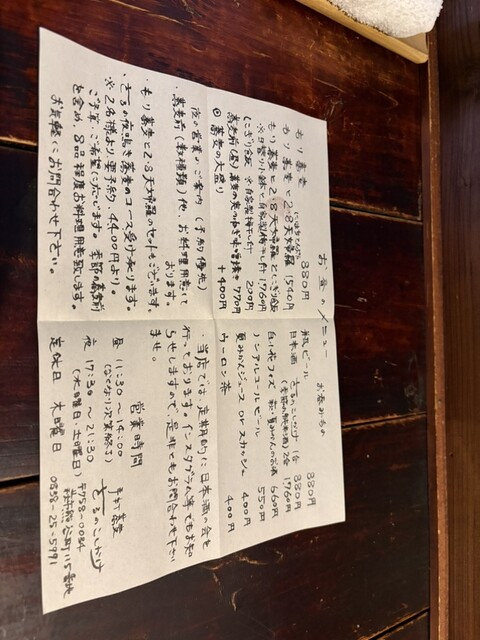 お昼のメニュー
もり蕎麦 880円
もり蕎麦と2・8天ぷら 1540円
もり蕎麦と2・8天ぷらとこぎり飯
※日替り小鉢と自家製梅干し付 1760円
(こぎり飯 ※自家製梅干し付 200円
蕎麦前(昼) 770円
◎蕎麦の大盛り +400円
お飲みもの
瓶ビール 880円
日本酒 1合 880円
2合 1760円
660円
ノンアルコールビール 550円
夏みかんジュース or スカッシュ 400円
ウーロン茶 400円
夜の営業のご案内(予約優先)
蕎麦前(数種類)他、お料理用意して
おります。
・もり蕎麦と2・8天ぷらのセットもございます。
・さるの腰掛け蕎麦のコース受け承ります。
※2名様より要予約・4400円より。
ご予算、ご希望に応じます。季節の蕎麦前
を含め8品程度お料理用意致します。
お気軽にお問合わせ下さい。
・当店では定期的に日本酒の会を
行っております。インスタグラム等でもお知
らせしますので是非ともお問合わせ下さい
ませ。
営業時間
昼 11:30〜14:00
夜 17:30〜21:30
(木曜日・土曜日)
定休日 木曜日
手打蕎麦
さるのこしかけ
〒758-0084
0838-25-5991